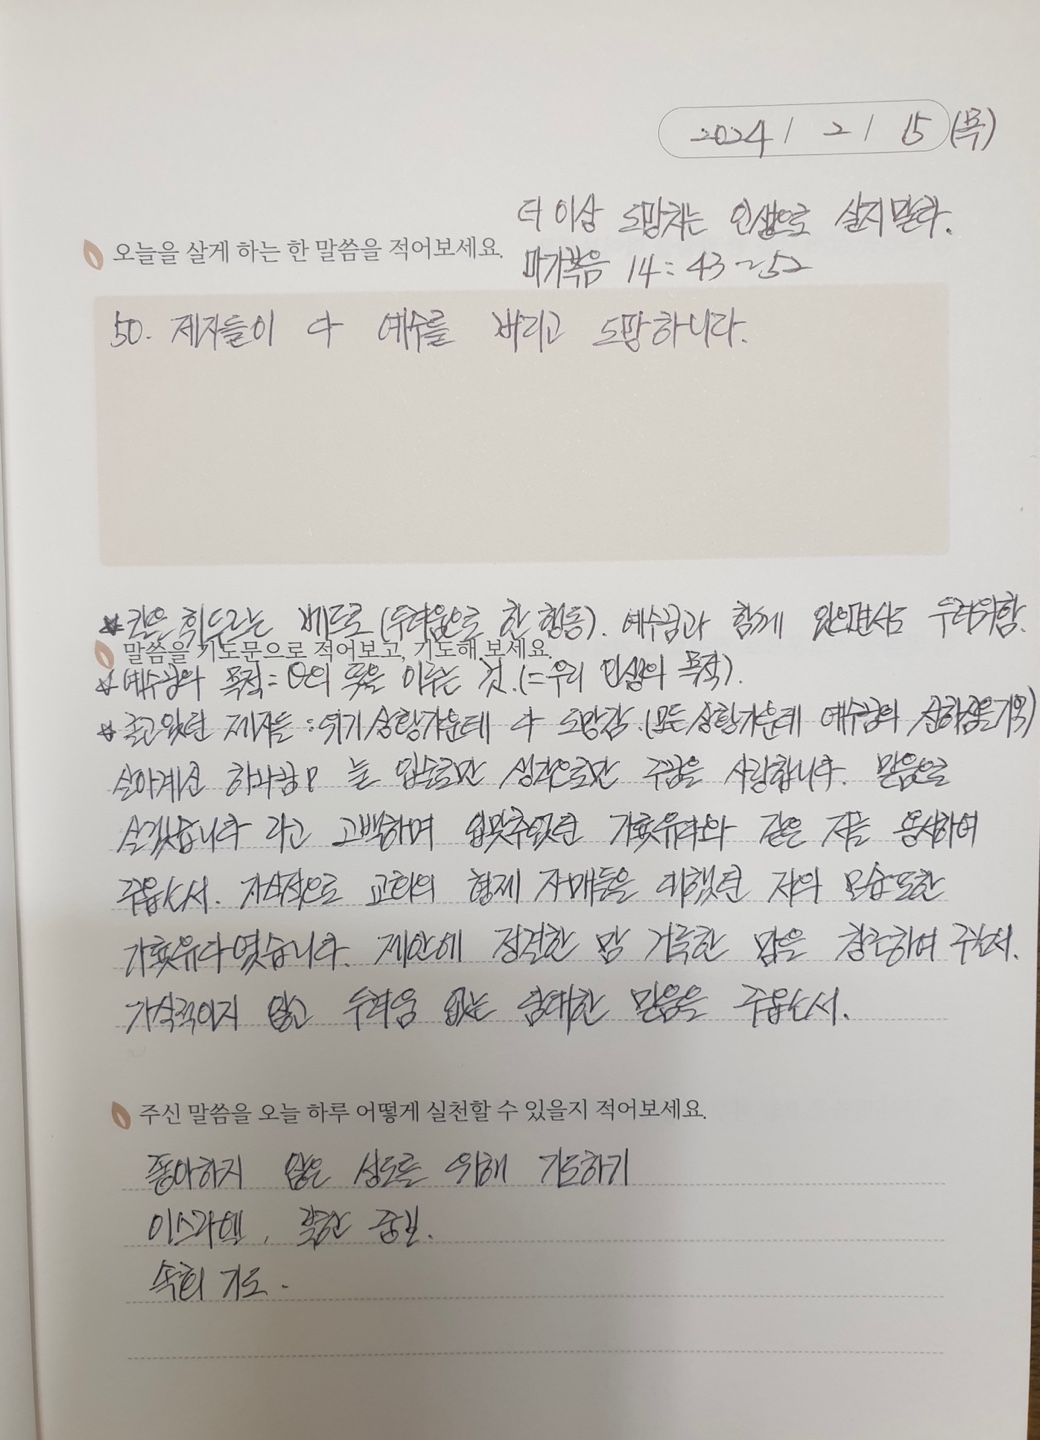 2024 / 2 / 15 (목)
더 이상 도망치는 인생으로 살지 말라.
오늘을 살게 하는 한 말씀을 적어보세요.
마가복음 14:43~52
50. 제자들이 다 예수를 버리고 도망하니라.
칼을 휘두르는 베드로 (두려움으로 한 행동). 예수님과 함께 있으면서도 두려워함.
말씀을 기도문으로 적어보고, 기도해 보세요.
예수님의 목적 = 의 뜻을 이루는 것. (=우리 인생의 목적).
졸고 있던 제자들 : 위기 상황 가운데 다 도망감. (모든 상황 가운데 예수님의 기억)
살아계신 하나님! 늘 입술로만 생각으로만 주님을 사랑합니다. 믿음으로
살겠습니다 라고 고백하며 입맞추었던 가룟유다와 같은 저를 용서하여
주옵소서. 가식적으로 교회의 형제 자매들을 대했던 저의 모습 또한
가룟유다였습니다. 제안에 정직한 맘 거룩한 맘을 창조하여 주소서.
가식적이지 않고 두려움 없는 담대한 믿음을 주옵소서.
주신 말씀을 오늘 하루 어떻게 실천할 수 있을지 적어보세요.
좋아하지 않은 성도를 위해 기도하기
이스라엘, 북한 중보.
속회 기도.